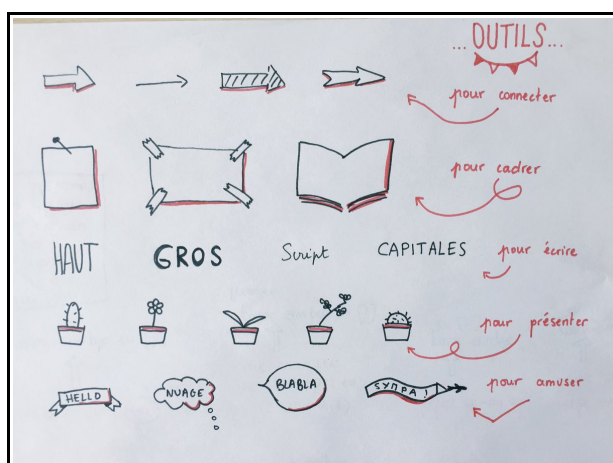 ...OUTILS...
pour connecter
pour cadrer
HAUT GROS Script CAPITALES pour écrire
pour présenter
HELLO NUAGE BLABLA SYMPA! pour amuser